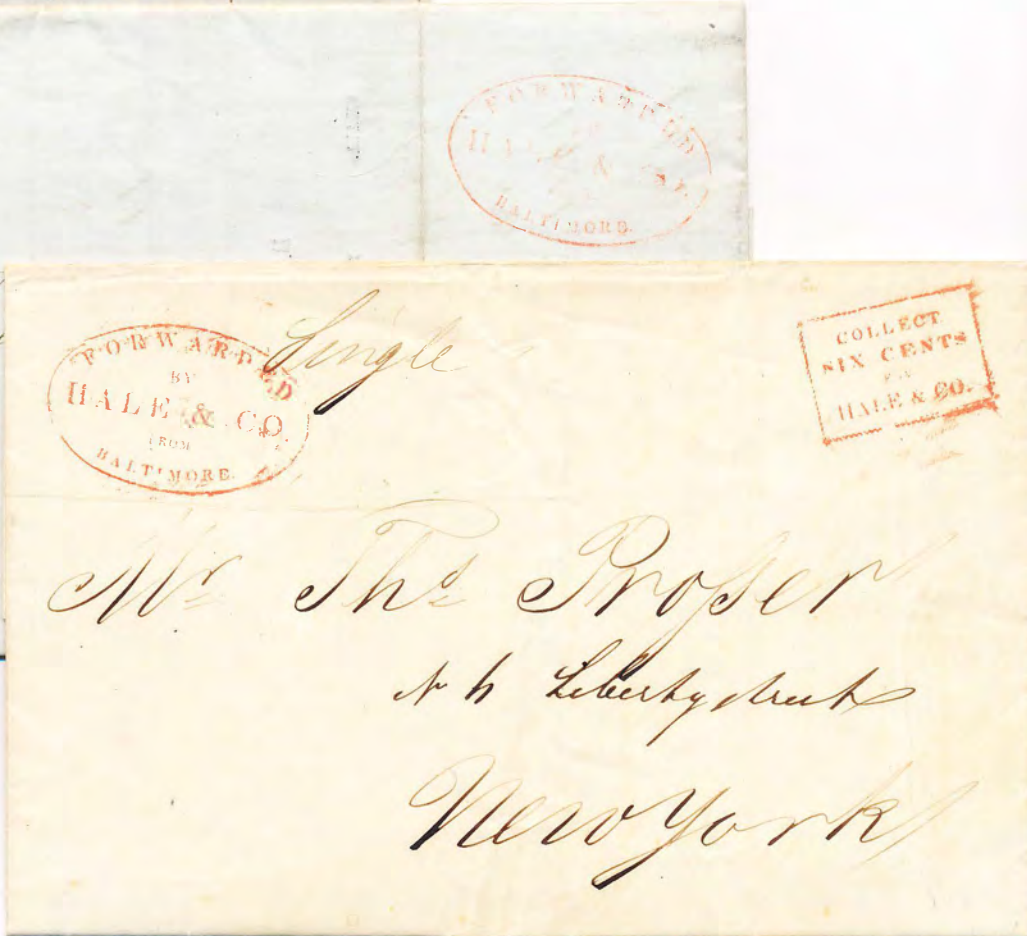 FORWARDED
HALE & CO.
BALTIMORE.
FORWARDED
BY
HALE & CO.
FROM
BALTIMORE.
Single
COLLECT
SIX CENTS
FOR
HALE & CO.
Mr Thos Proſser
Liberty street
New York